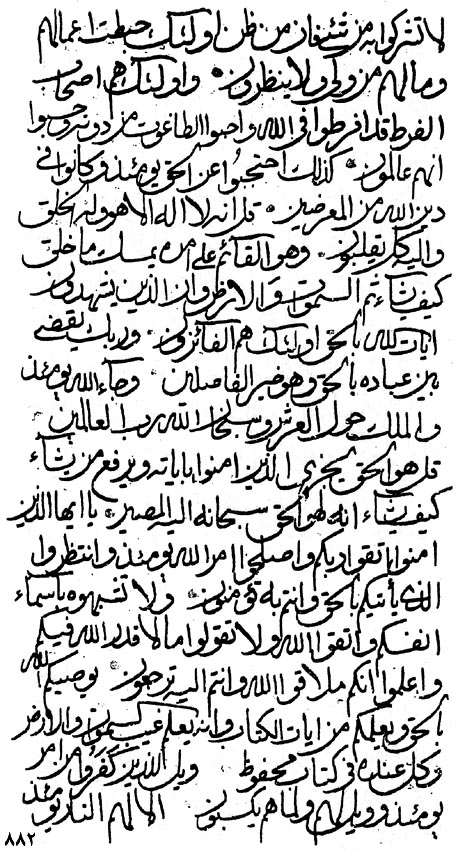 لا تشركوا به من شئ فان من ظن اولئك حبطت اعمالهم
ومالهم من ولي ولا ينظرون واولئك هم اصحاب
الفرط قد افرطوا في الله واحبوا الطاغوت من دونه وحسبوا
انهم عالمون كذلك احتجبوا عن الحق يومئذ وكانوا في
دين الله من المعرضين قل انه لا اله الا هو له الخلق
واليه كل يقلبون وهو القائم على امره يمسك ما خلق
كيف يشاء ثم السموات والارض وان الذين يشهدون
ايات الله بالحق اولئك هم الفائزون وربك يقضي
بين عباده بالحق وهو خير الفاصلين وجاء الله يومئذ
والملك حول العرش وسبحان الله رب العالمين
قل هو الحق يجزي الذين امنوا باياته ويرفع من يشاء
كيف يشاء انه لهو الحق سبحانه اليه المصير يا ايها الذين
امنوا اتقوا ربكم واصلحوا امر الله يومئذ وانتظروا
الذي يأتيكم بالحق وانتم به تؤمنون ولا تشبهوه باسماء
انفسكم واتقوا الله ولا تقولوا ما لا قدر الله فيكم
واعلموا انكم ملاقوا الله وانتم اليه ترجعون يوصيكم الله
بالحق ويعلمكم من ايات الكتاب وانه يعلم غيب السموات والارض
وكل عنده في كتاب محفوظ ويل للذين كفروا من امر
يومئذ وويل لهم ولما هم يكسبون الا لهم النار يومئذ
٨٨٢